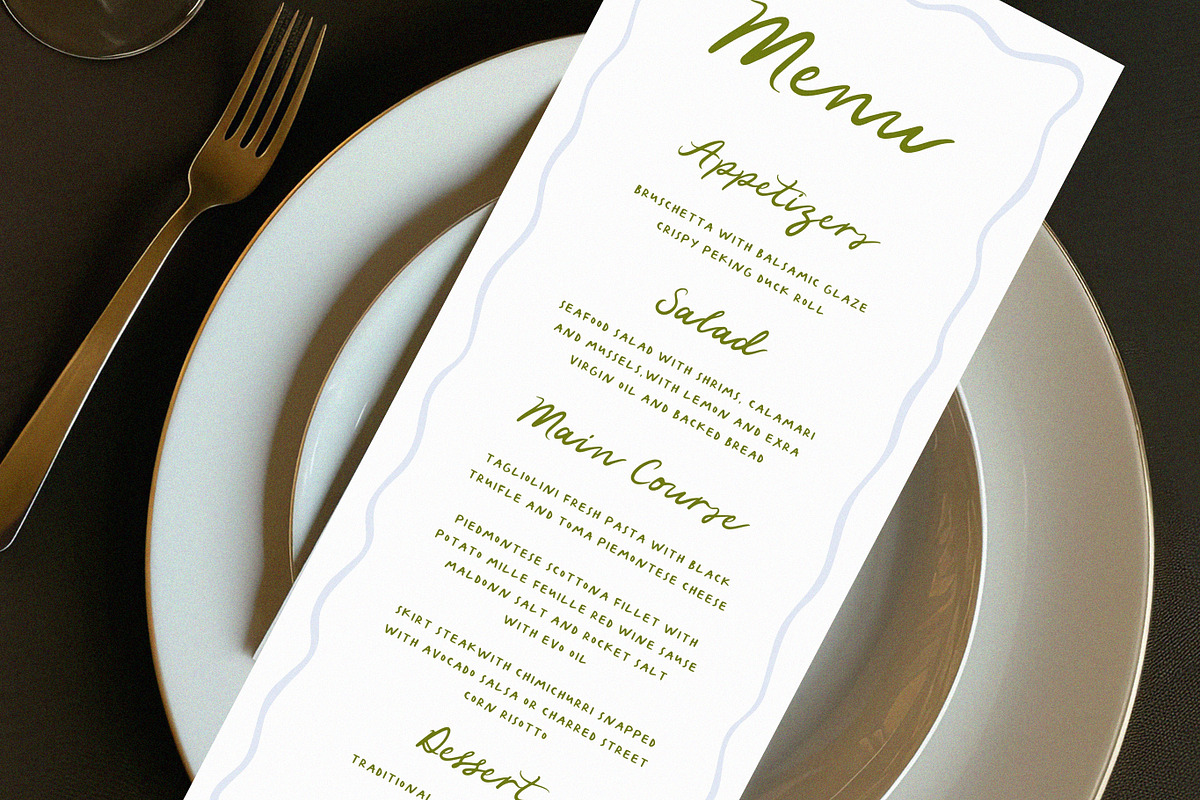 Menu
Appetizers
BRUSCHETTA WITH BALSAMIC GLAZE
CRISPY PEKING DUCK ROLL
Salad
SEAFOOD SALAD WITH SHRIMS, CALAMARI
AND MUSSELS.WITH LEMON AND EXRA
VIRGIN OIL AND BACKED BREAD
Main Course
TAGLIOLINI FRESH PASTA WITH BLACK
TRUIFLE AND TOMA PIEMONTESE CHEESE
PIEDMONTESE SCOTTONA FILLET WITH
POTATO MILLE FEUILLE RED WINE SAUSE
MALDONN SALT AND ROCKET SALT
WITH EVO OIL
SKIRT STEAKWITH CHIMICHURRI SNAPPED
WITH AVOCADO SALSA OR CHARRED STREET
CORN RISOTTO
Dessert
TRADITIONAL